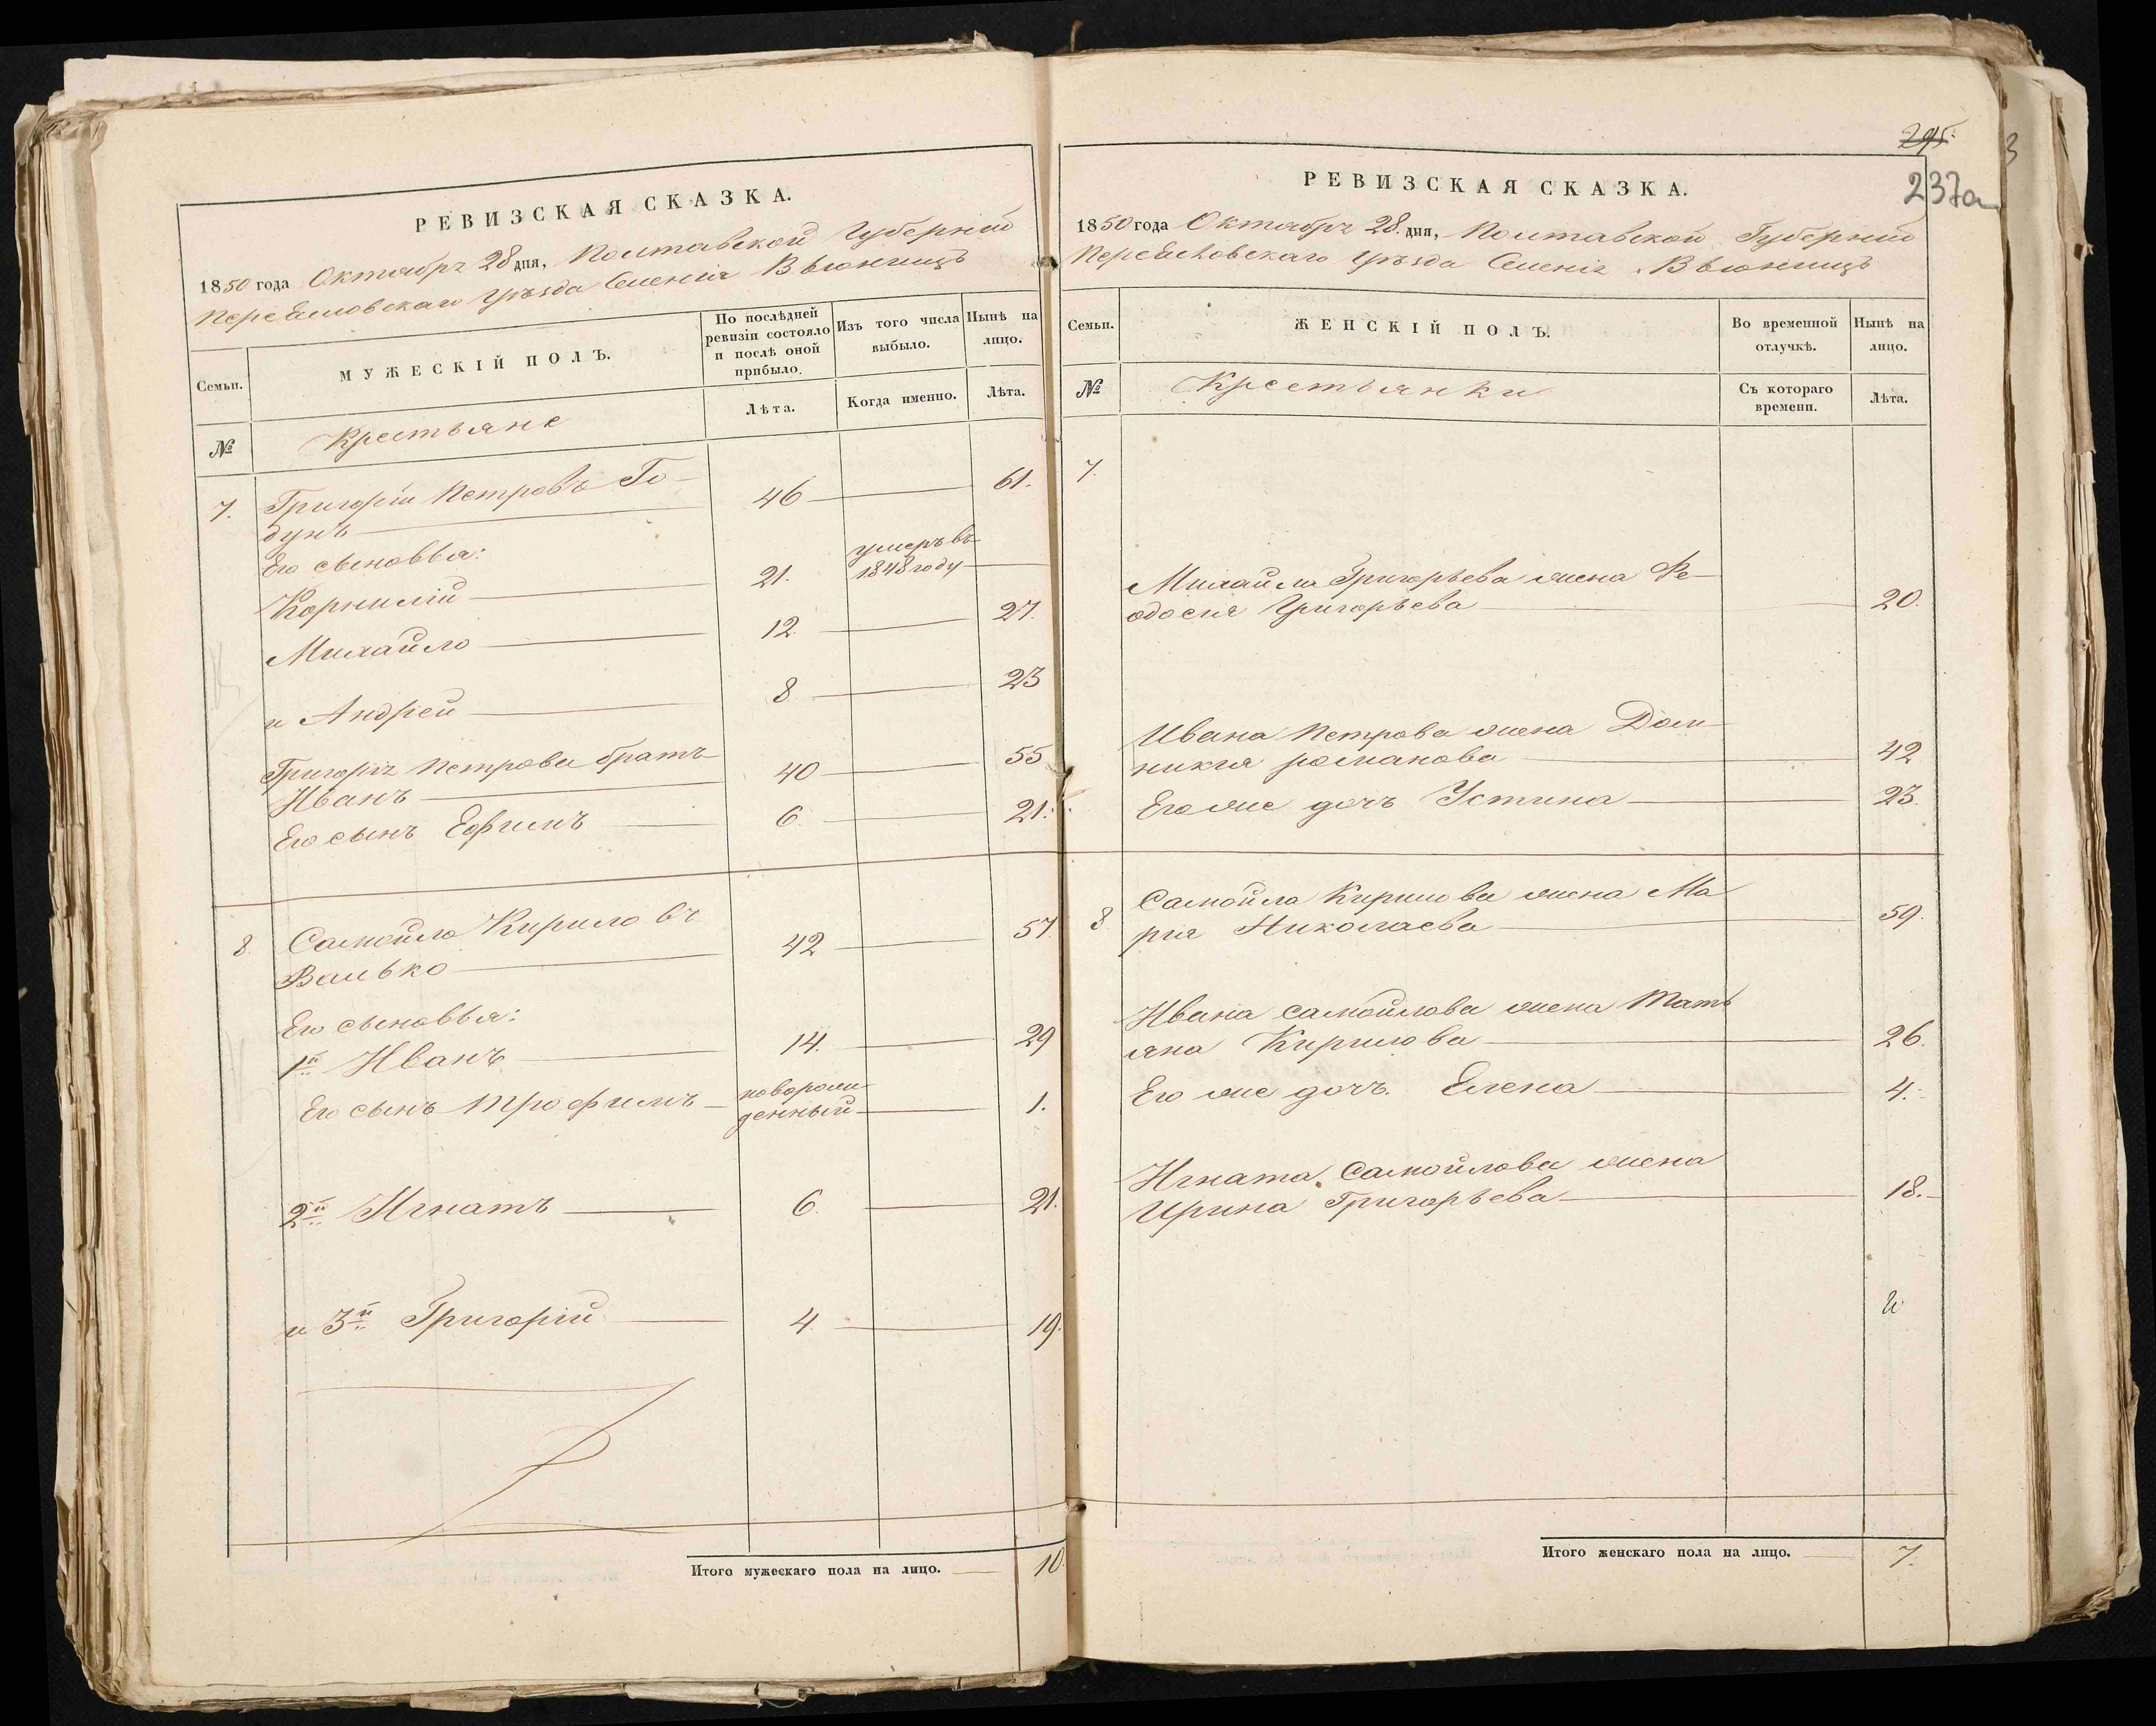 РЕВИЗСКАЯ СКАЗКА.
1850 года Октября 28 дня, Полтавской Губерніи
Переяславскаго уѣзда Селенія Вьюнищъ
Семьи.
МУЖЕСКІЙ ПОЛЪ.
По послѣдней ревизіи состояло и послѣ оной прибыло.
Изъ того числа выбыло.
Нынѣ на лицо.
№
Крестьяне
Лѣта.
Когда именно.
Лѣта.
7. Григорій Петровъ Го- 46 61.
дунъ
Его сыновья:
Корнилій 21. умеръ въ 1848 году
Михайло 12. 27.
и Андрей 8 23
Григорія Петрова братъ
Иванъ 40 55
Его сынъ Ефимъ 6 21.
8. Самойло Кириловъ 42 57
Валько
Его сыновья:
1й Иванъ 14. 29
Его сынъ Трофимъ новорожденный 1.
2й Игнатъ 6. 21.
и 3й Григорій 4. 19.
Итого мужескаго пола на лицо. 10.
295.
237а
3
РЕВИЗСКАЯ СКАЗКА.
1850 года Октября 28. дня, Полтавской Губерніи
Переяславскаго уѣзда Селенія Вьюнищъ
Семьи.
ЖЕНСКІЙ ПОЛЪ.
Во временной отлучкѣ.
Нынѣ на лицо.
№
Крестьянки
Съ котораго времени.
Лѣта.
7.
Михайла Григорьева жена Фе-
одосия Григорьева 20.
Ивана Петрова жена Дом-
никия романова 42
Его же дочь Устина 23.
8. Самойла Кирилова жена Ма
рія Николаева 59.
Ивана самойлова жена Тать
яна Кирилова 26.
Его же дочь. Елена 4.
Игната Самойлова жена
Ирина Григорьева 18.
Итого женскаго пола на лицо. 7.